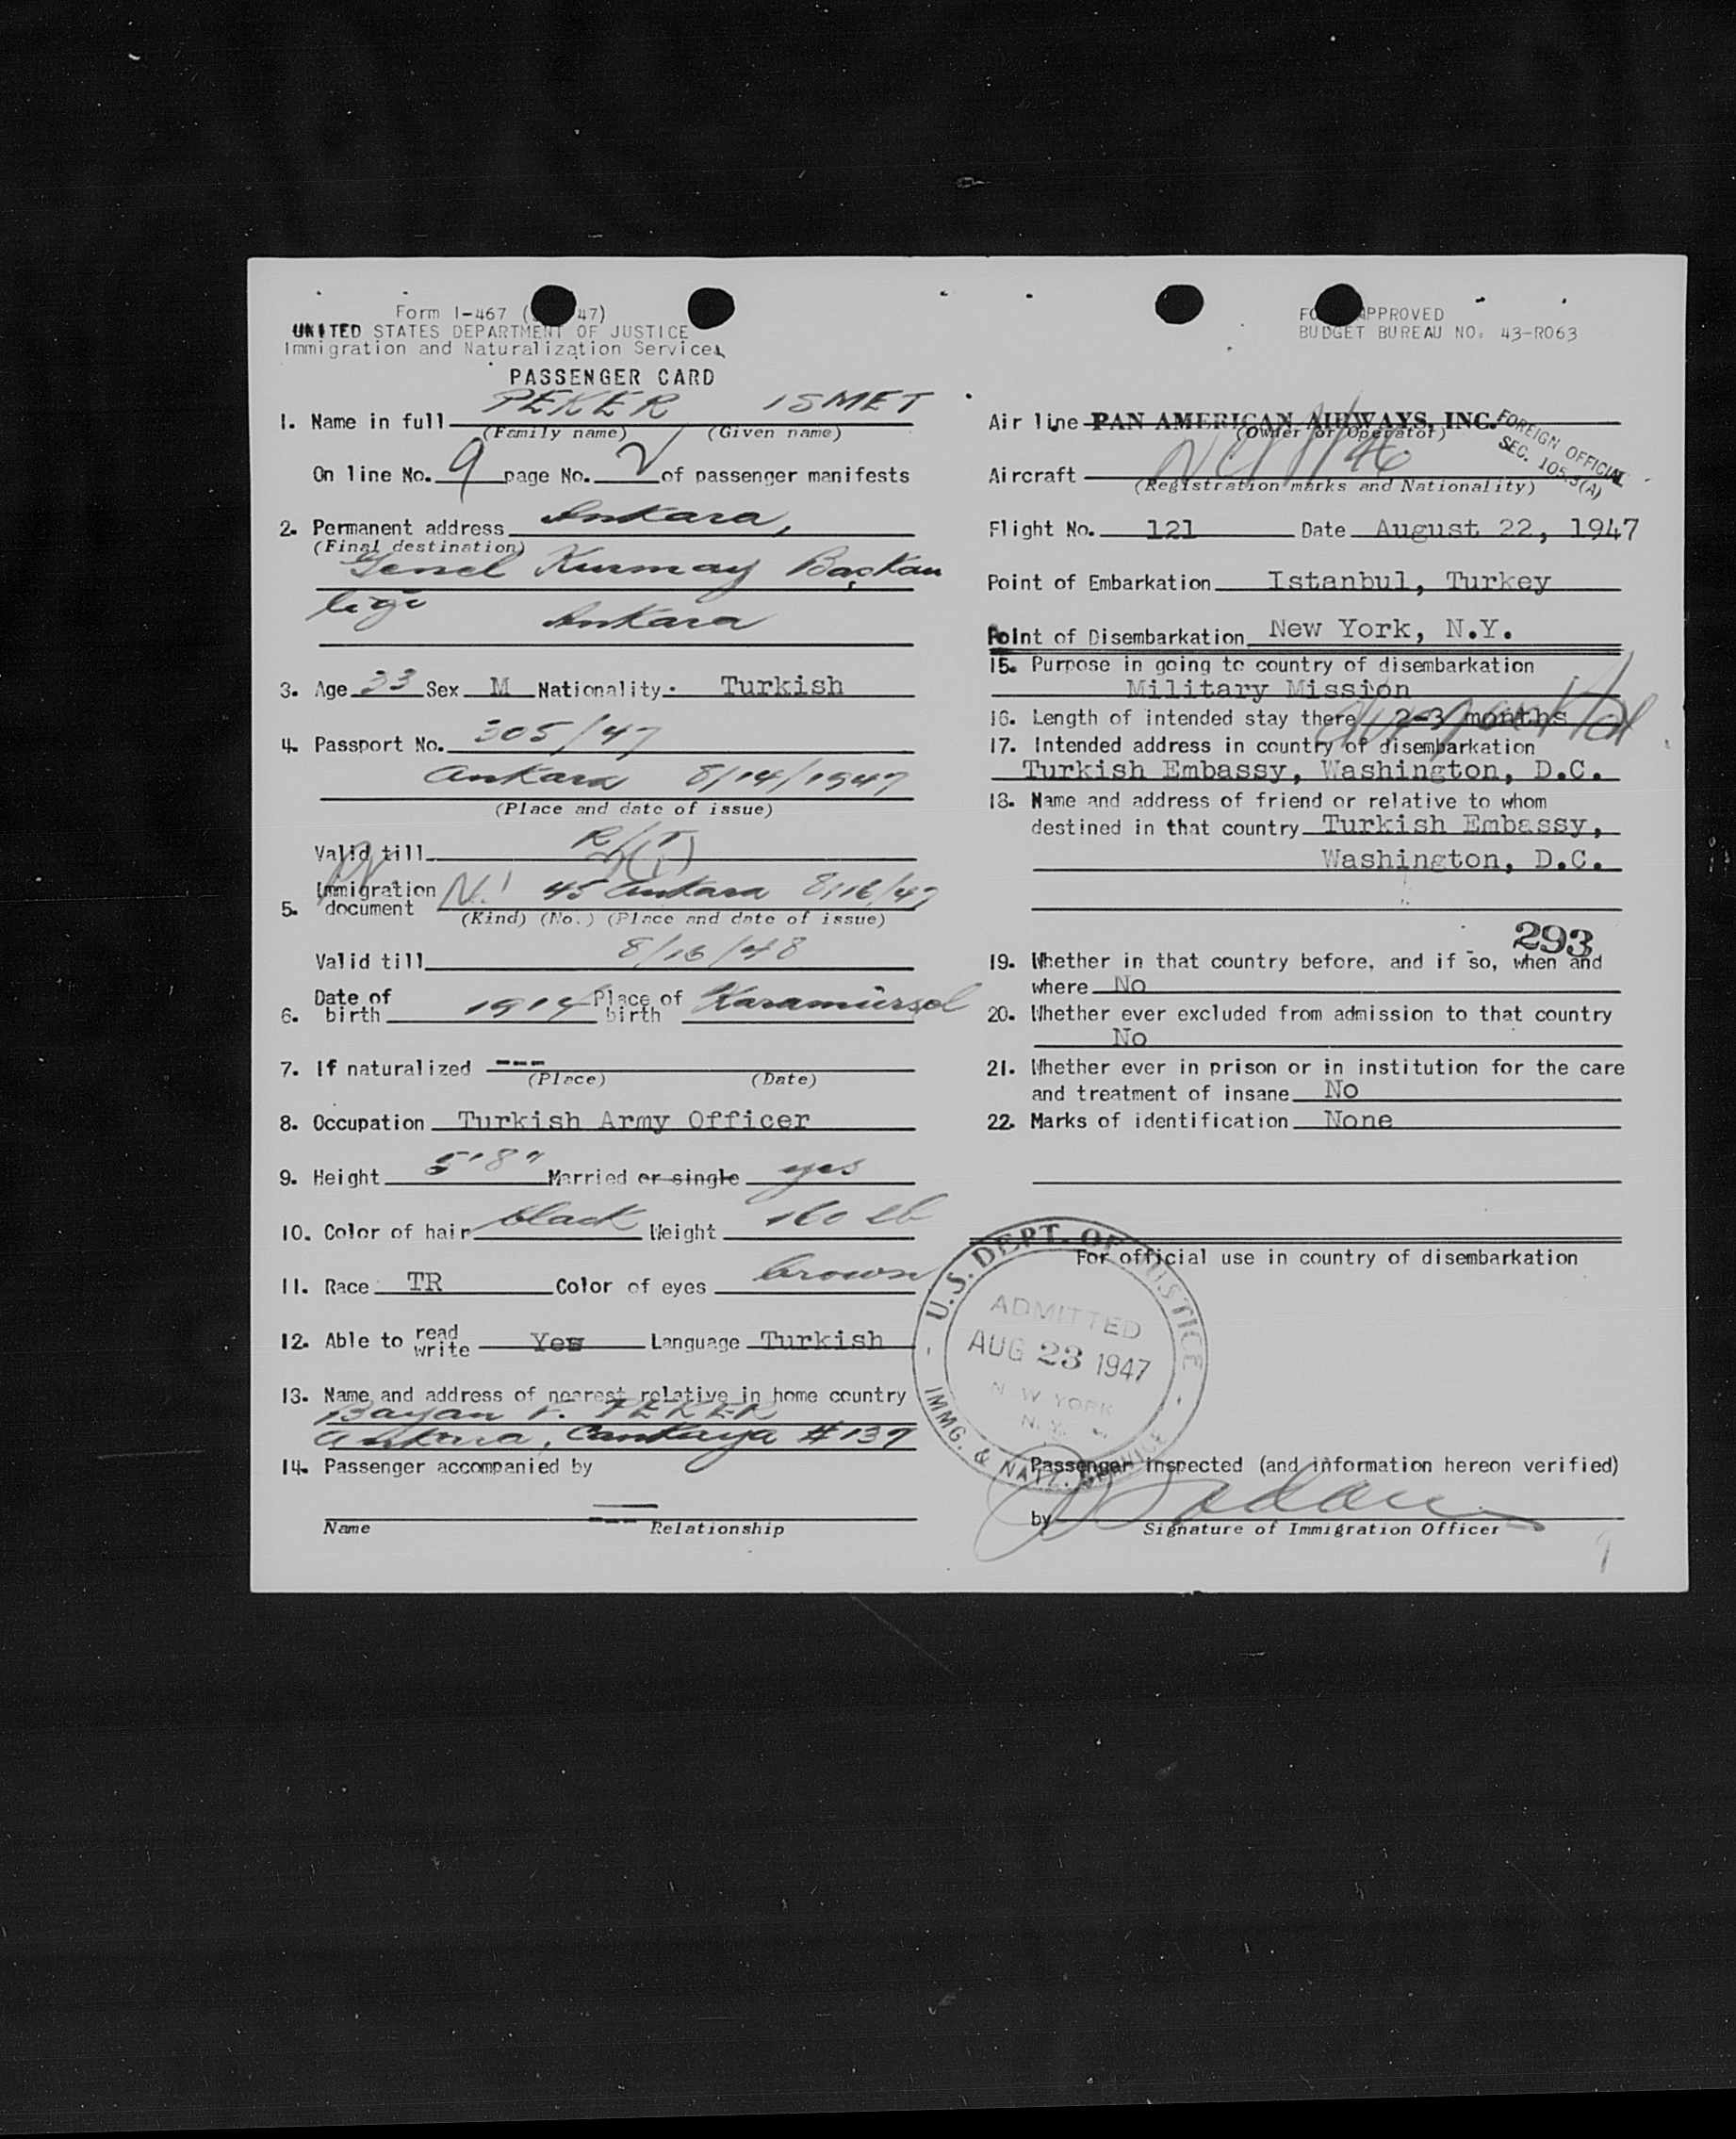 Form I-467 ( 47)
UNITED STATES DEPARTMENT OF JUSTICE
Immigration and Naturalization Service
PASSENGER CARD
1. Name in full PEKER ISMET
(Family name) (Given name)
On line No. 9 page No. 2 of passenger manifests
2. Permanent address Ankara,
(Final destination)
Genel Kurmay Başkan
liği Ankara
3. Age 33 Sex M Nationality Turkish
4. Passport No. 305/47
Ankara 8/14/1947
(Place and date of issue)
Valid till
5. Immigration document 45 Ankara 8/16/47
(Kind) (No.) (Place and date of issue)
Valid till 8/16/48
6. Date of birth 1914 Place of birth Karamürsel
7. If naturalized ---
(Place) (Date)
8. Occupation Turkish Army Officer
9. Height 5'8" Married or single yes
10. Color of hair black Weight 160 lb
11. Race TR Color of eyes brown
12. Able to read write Yes Language Turkish
13. Name and address of nearest relative in home country
Bayan F. PEKER
Ankara, Cankaya #137
14. Passenger accompanied by
---
Name Relationship
FO APPROVED
BUDGET BUREAU NO. 43-R063
Air line PAN AMERICAN AIRWAYS, INC.
(Owner or Operator)
FOREIGN OFFICIAL
SEC. 105.3(A)
Aircraft
(Registration marks and Nationality)
Flight No. 121 Date August 22, 1947
Point of Embarkation Istanbul, Turkey
Point of Disembarkation New York, N.Y.
15. Purpose in going to country of disembarkation
Military Mission
16. Length of intended stay there 2-3 months
17. Intended address in country of disembarkation
Turkish Embassy, Washington, D.C.
18. Name and address of friend or relative to whom
destined in that country Turkish Embassy,
Washington, D.C.
293
19. Whether in that country before, and if so, when and
where No
20. Whether ever excluded from admission to that country
No
21. Whether ever in prison or in institution for the care
and treatment of insane No
22. Marks of identification None
For official use in country of disembarkation
U.S. DEPT. OF JUSTICE
ADMITTED
AUG 23 1947
NEW YORK
N.Y.
IMMG. & NATZ. SERVICE
Passenger inspected (and information hereon verified)
by
Signature of Immigration Officer
9